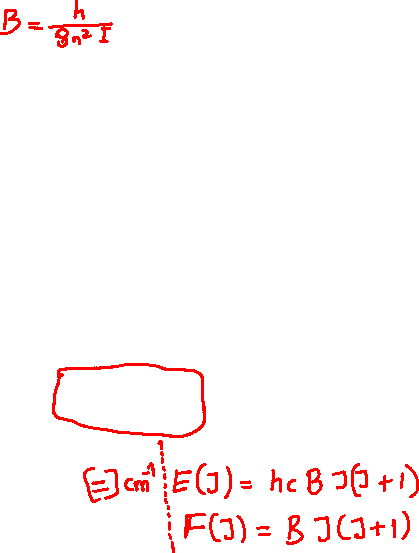 B = h / 8π² I
[=] cm⁻¹ E(J) = hc B J(J+1)
F(J) = B J(J+1)